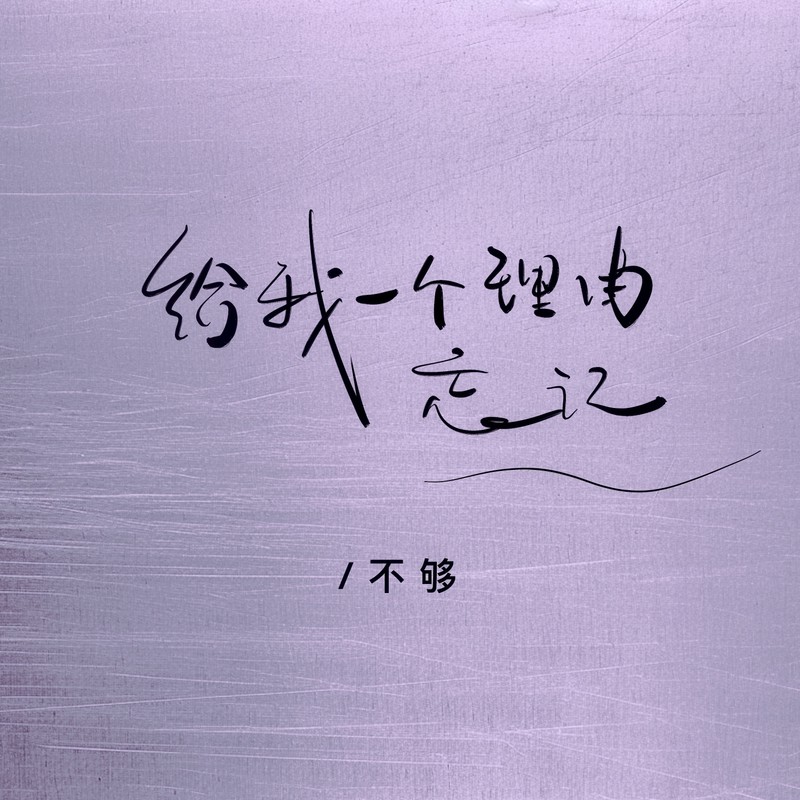 给我一个理由
忘记
/不够